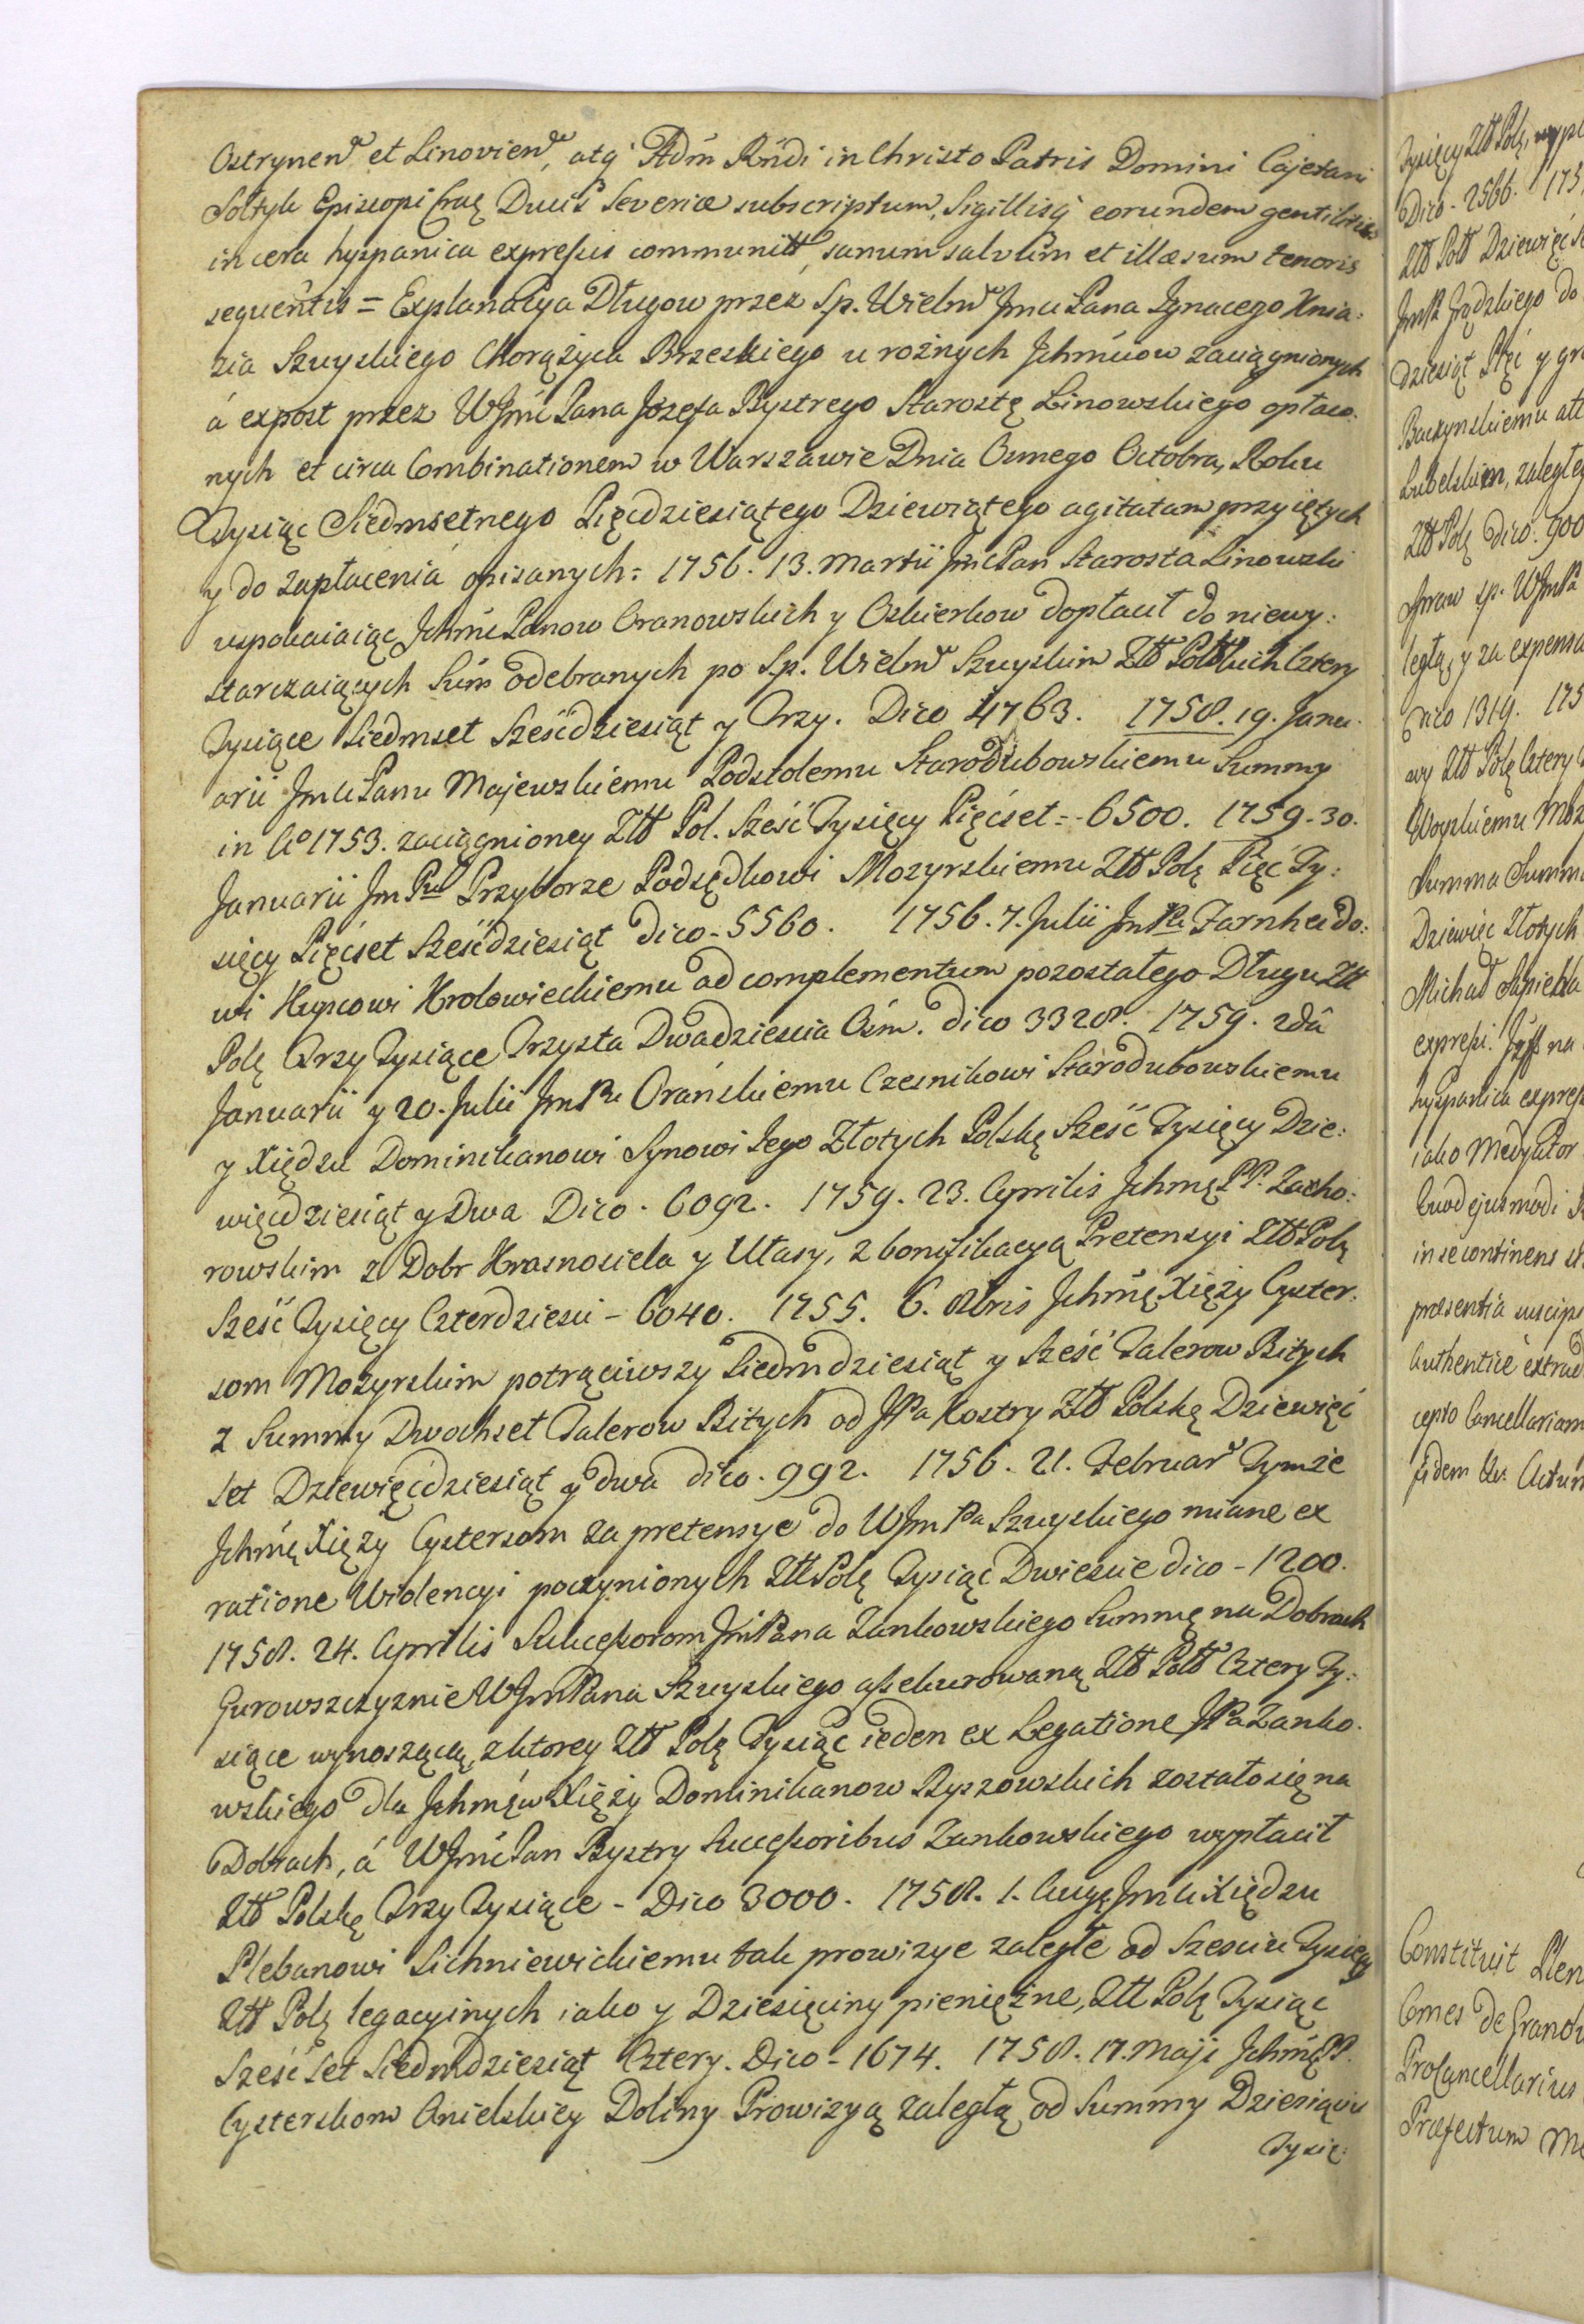 Ostrynen̄ et Linovien̄, atq̨ Adm̄ Rn̄di in Christo Patris Domini Cajetani
Sołtyk Episcopi Crac̨ Ducis Severiæ subscriptum, Sigillisq̨ eorundem gentilitiis
in cera hyspanica expressis communitt̄, sanum salvum et illæsum tenoris
sequentis = Explanacya Długow przez S.p. Wielm̄ Jmci Pana Ignacego Knia:
zia Szuyskiego Chorążyca Brzeskiego u rożnych Jchmciow zaciągnionych
á expost przez WJmć Pana Jozefa Bystrego Starostę Linowskiego opłaco:
nych et circa Combinationem w Warszawie Dnia Osmego Octobra, Roku
Tysiąc Siedmsetnego Pięcdziesiątego Dziewiątego agitatam przyiętych
y do zapłacenia opisanych: 1756. 13. Martii Jmc Pan Starosta Linowski
uspokaiaiąc Jchmć Panow Oranowskich y Oskierkow dopłacił do niewy:
starczaiących Sum̄ odebranych po S.p. Wielm̄ Szuyskim Złł Polskich Cztery
Tysiące Siedmset Sześcdziesiąt y Trzy. Dico 4763. 1758. 19. Janu:
arii Jmci Panu Majewskiemu Podstolemu Starodubowskiemu Summy
in Aº 1753. zaciągnioney Złł Pol. Sześć Tysięcy Pięćset = 6500. 1759. 30.
Januarii Jm Pu Przyborze Podsędkowi Mozyrskiemu Złł Polę Pięć Ty:
sięcy Pięćset Sześćdziesiąt dico - 5560. 1756. 7. Julii Jm Pu Farnheido:
wi Kupcowi Krolowieckiemu ad complementum pozostałego Długu Złł
Polę Trzy Tysiące Trzysta Dwadziescia Ośm. dico 3328. 1759. 2dâ
Januarii y 20. Julii Jm Pu Orańskiemu Czesnikowi Starodubowskiemu
y Xiędzu Dominikanowi Synowi Jego Złotych Polskę Sześć Tysięcy Dzie:
więcdziesiąt y Dwa Dico. 6092. 1759. 23. Aprilis Jchmę PP. Zacho:
rowskim z Dobr Krasnosiela y Ułasy, z bonifikacyą Pretensyi Złł Polę
Sześć Tysięcy Czterdziesci - 6040. 1755. 6. 8bris Jchmę Xięży Cyster:
som Mozyrskim potrąciwszy Siedmdziesiąt y Sześć Talerow Bitych
z Summy Dwochset Talerow Bitych od JPa Kostry Złł Polskę Dziewięć
set Dziewięćdziesiąt y dwa dico. 992. 1756. 21. Februar̄ Tymże
Jchmę Xięży Cystersom za pretensye do WJm Pa Szuyskiego miane ex
ratione Wiolencyi poczynionych Złł Polę Tysiąc Dwiescie dico - 1200.
1758. 24. Aprilis Sukcessorom Jm Pana Zankowskiego Summę na Dobrach
Gurowszczyznie WJm Pana Szuyskiego assekurowaną Złł Polł Cztery Ty:
siące wynoszącą, z ktorey Złł Polę Tysiąc ieden ex Legatione JPa Zanko:
wskiego dla Jchmęw Xięży Dominikanow Ryszowskich zostało się na
Dobrach, á WJmć Pan Bystry Successoribus Zankowskiego wypłacił
Złł Polskę Trzy Tysiące - Dico 3000. 1758. 1. Augę Jmci Xiędzu
Plebanowi Lichniewickiemu tak prowizye zaległe od Szesciu Tysięcy
Złł Polę legacyinych iako y Dziesięciny pieniężne, Złł Polę Tysiąc
Sześćset Siedmdziesiąt Cztery. Dico - 1674. 1758. 17. Maji Jchmę PP.
Cysterskom Anielskiey Doliny Prowizyą zaległą od Summy Dziesiąciu
Tysię:
Tysięcy Złł Polę, wypł
Dico - 2566. 175
Złł Polł Dziewięć
do
dziesiąt Pięć y gr
Baczynskiemu
Lubelskim, zaległey
Złł Polę dico. 900
Spraw s.p. WJm Pa
ległą, y za expensa
Dico 1319. 175
Złł Polę Cztery
Woyskiemu Moz
Summa Summ
Dziewięć Złotych
Michał Sapieha
expressi. na
hyspanica expres
iako Medyator
Quod ejusmodi
in se continens
præsentia suscip
Authentice extrad
Cancellariam
fidem Actum
Constituit Plen
Comes de Granow
ProCancellarius
Præfectum